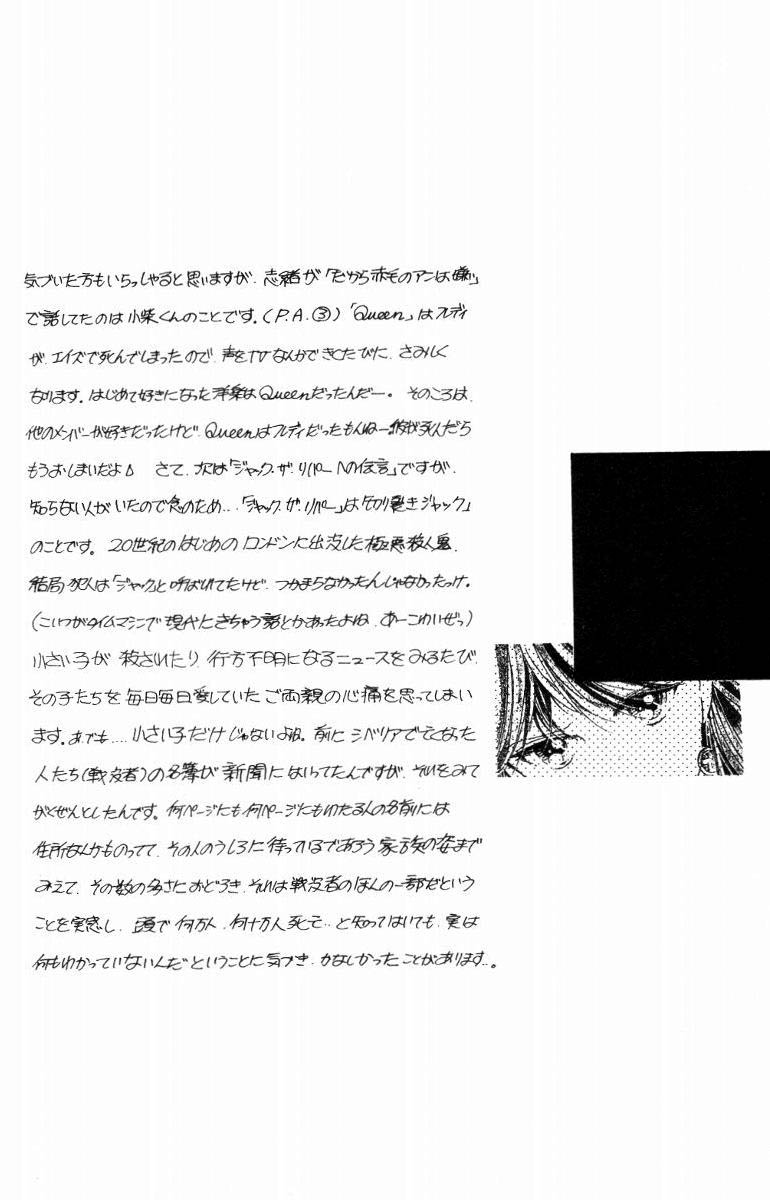 気づいた方もいらっしゃると思いますが、志緒が「だから赤毛のアンは嫌い」
で話してたのは小柴くんのことです。(P.A.③)「Queen」はフレディ
が、エイズで死んでしまったので、声をTVなんかできくたびに、さみしく
なります。はじめて好きになった洋楽はQueenだったんだー。そのころは、
他のメンバーが好きだったけど、Queenはフレディだったもんねー。彼が死んだら
もうおしまいだよ さて、次は「ジャック・ザ・リパーへの伝言」ですが、
知らない人がいたので念のため…「ジャック・ザ・リパー」は「切り裂きジャック」
のことです。20世紀のはじめのロンドンに出没した極悪殺人鬼、
結局犯人は「ジャック」と呼ばれてたけど、つかまらなかったんじゃなかったっけ。
(こいつがタイムマシンで現代にきちゃう話とかあったよね、あーこわいぜっ)
小さい子が殺されたり、行方不明になるニュースをみるたび、
その子たちを毎日毎日愛していたご両親の心痛を思ってしまい
ます。あでも…小さい子だけじゃないよね。前にシベリアで亡くなった
人たち(戦没者)の名簿が新聞にはいってたんですが、それをみて
がくぜんとしたんです。何ページにも何ページにもわたる人の名前には
住所なんかものってて、その人のうしろに待っているであろう家族の姿まで
みえて、その数の多さにおどろき、それは戦没者のほんの一部だという
ことを実感し、頭で何万人、何十万人死亡…と知ってはいても、実は
何もわかっていないんだということに気づき、かなしかったことがあります…。